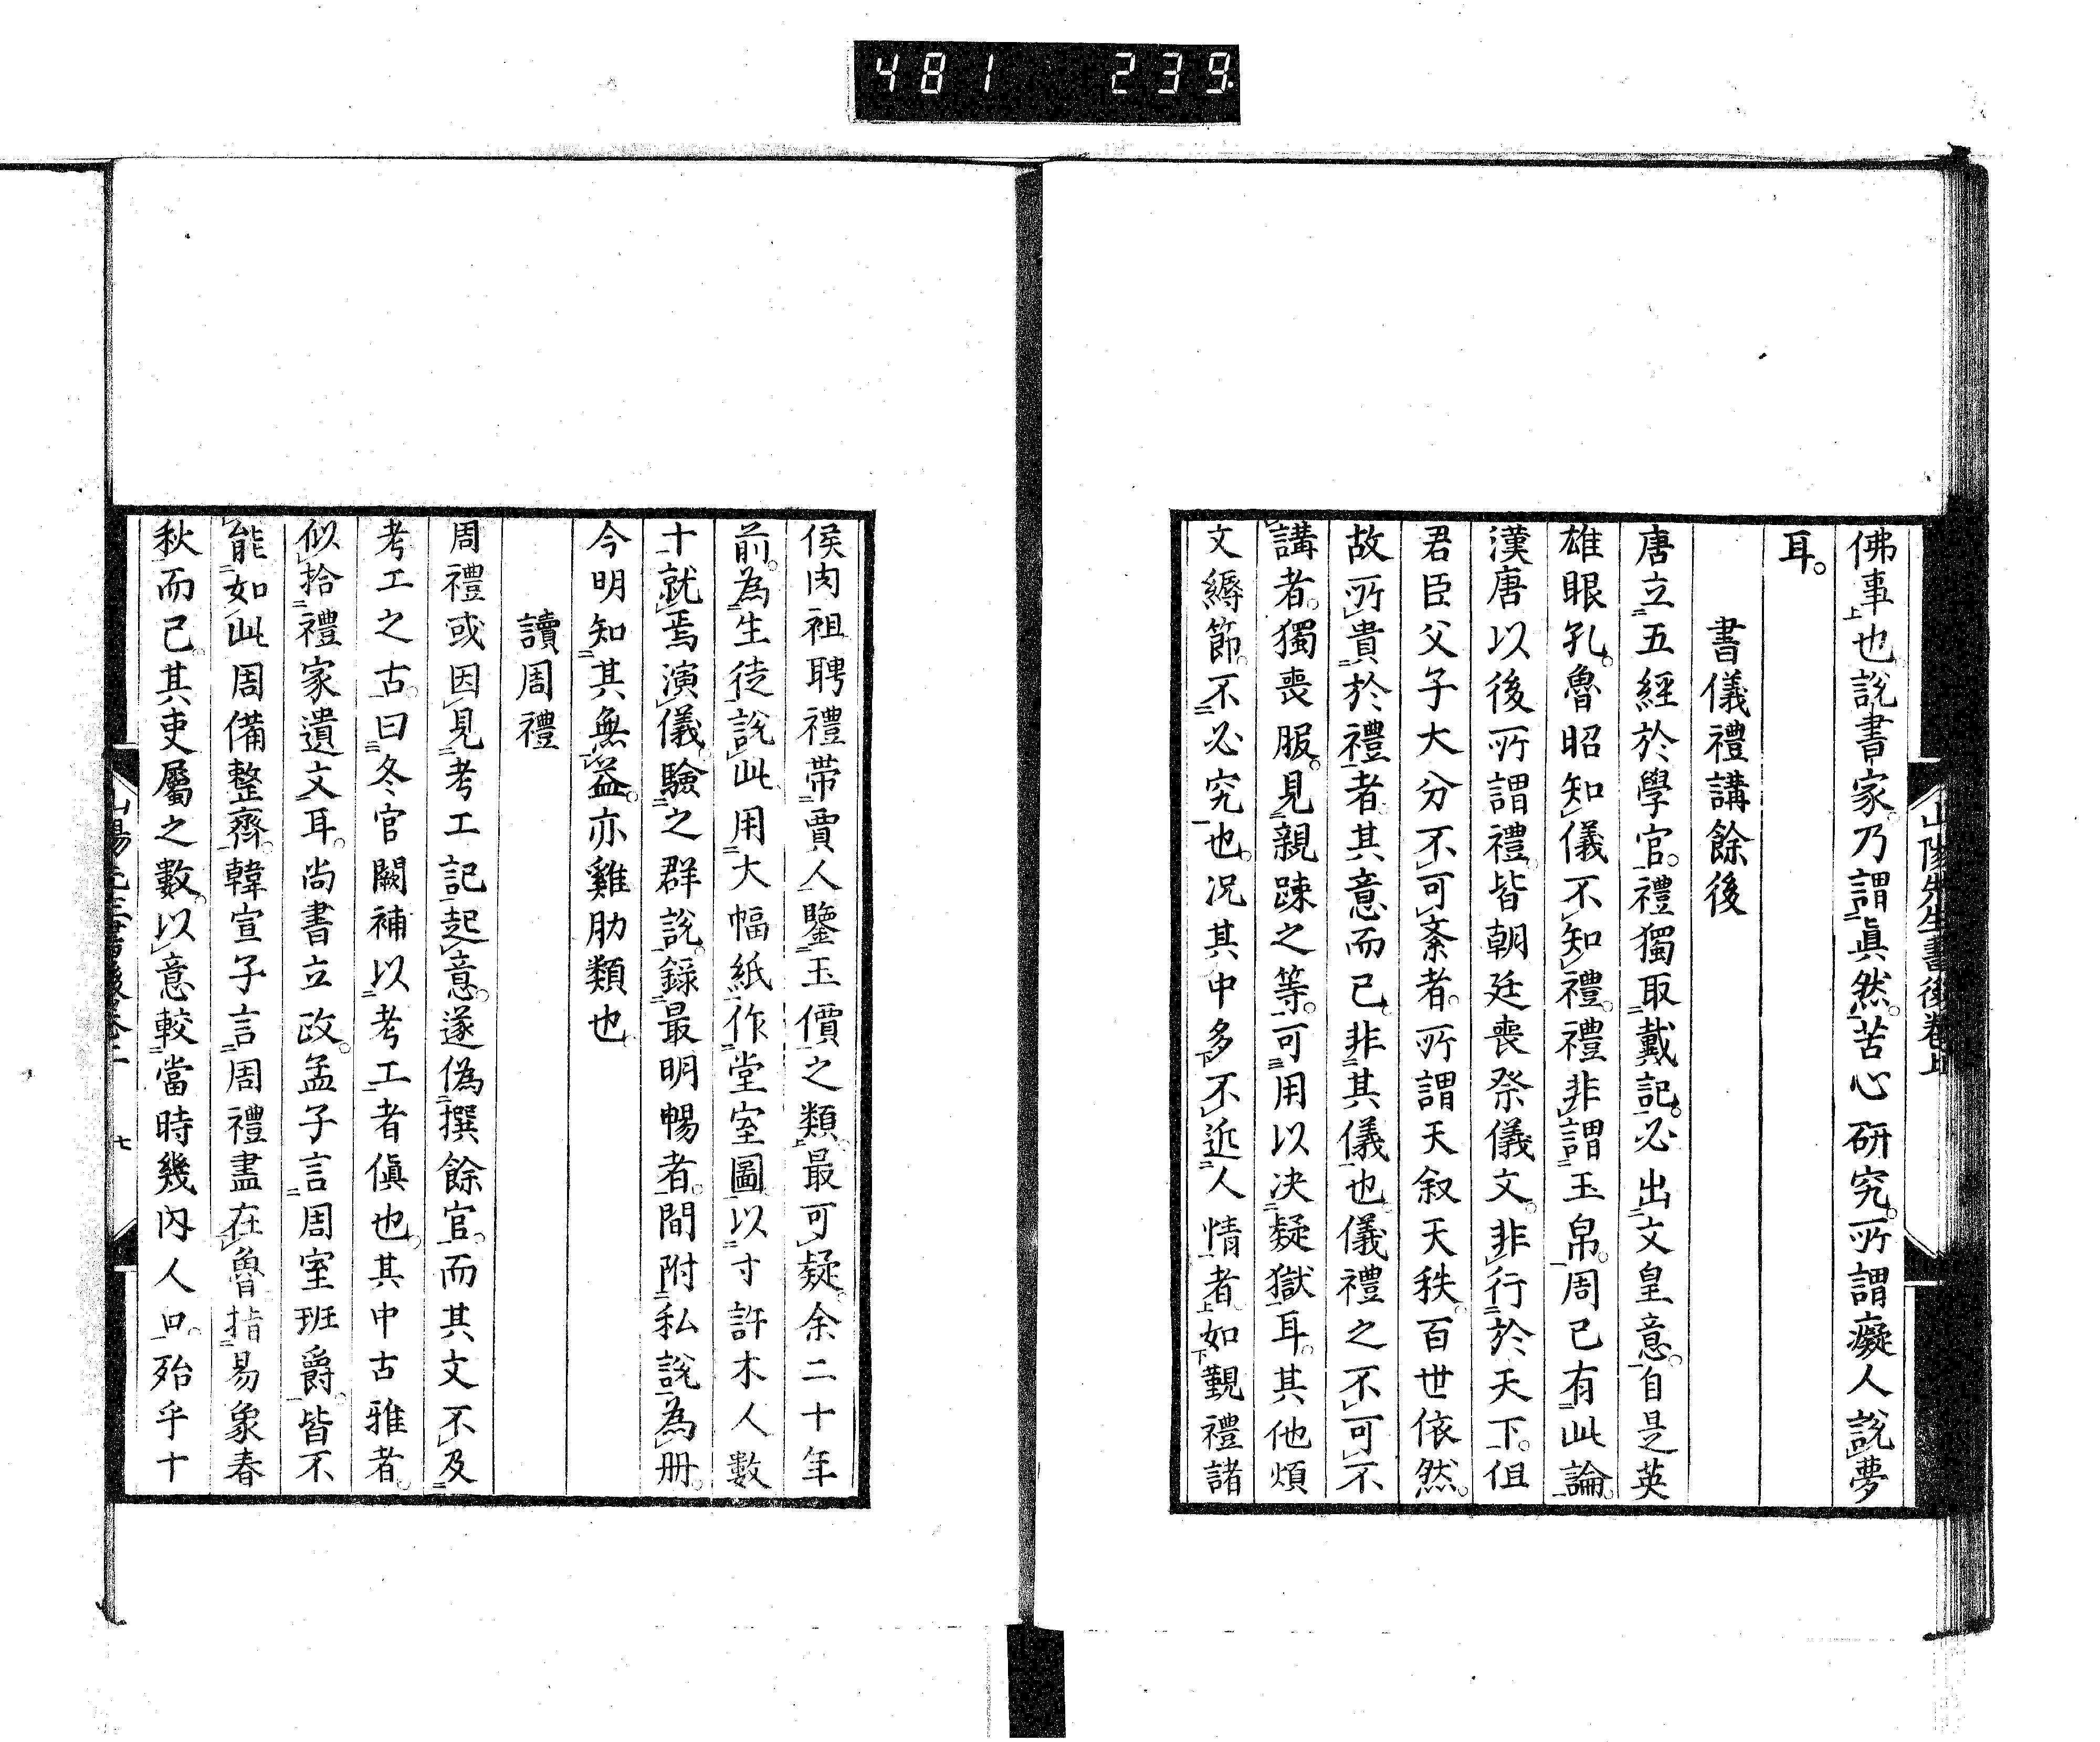 481 239
山陽先生書後卷上
佛事也說書家乃謂眞然苦心研究所謂癡人說夢
耳。
書儀禮講餘後
唐立五經於學官。禮獨取戴記。必出文皇意。自是英
雄眼孔。魯昭知儀不知禮。禮非謂玉帛。周已有此論。
漢唐以後所謂禮皆朝廷喪祭儀文。非行於天下。但
君臣父子大分不可紊者。所謂天叙天秩。百世依然。
故所貴於禮者其意而已。非其儀也。儀禮之不可不
講者。獨喪服。見親踈之等。可用以决疑獄耳。其他煩
文縟節。不必究也。况其中多不近人情者如覲禮諸
侯肉袒聘禮帶賈人鑒玉價之類。最可疑。余二十年
前。為生徒說此用大幅紙作堂室圖以寸許木人數
十就焉演儀驗之群說。錄最明暢者。間附私說為册。
今明知其無益。亦雞肋類也
讀周禮
周禮或因見考工記起意。遂偽撰餘官。而其文不及
考工之古。曰冬官闕補以考工者傎也。其中古雅者。
似拾禮家遺文耳。尚書立政。孟子言周室班爵。皆不
能如此周備整齊。韓宣子言周禮盡在魯指易象春
秋而已。其吏屬之數。以意較當時幾內人口。殆乎十
七